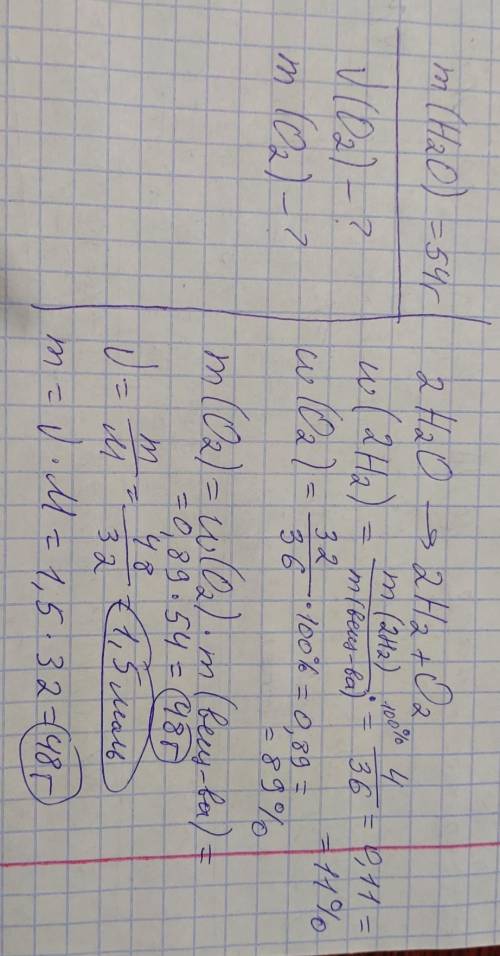 m(H₂O) = 54г
ν(O₂) - ?
m(O₂) - ?
2H₂O → 2H₂ + O₂
w(2H₂) = m(2H₂) / m(вещ-ва) · 100% = 4/36 = 0,11 =
= 11%
w(O₂) = 32/36 · 100% = 0,89 =
= 89%
m(O₂) = w(O₂) · m(вещ-ва) =
= 0,89 · 54 = 48г
ν = m/M = 48/32 = 1,5 моль
m = ν · M = 1,5 · 32 = 48г